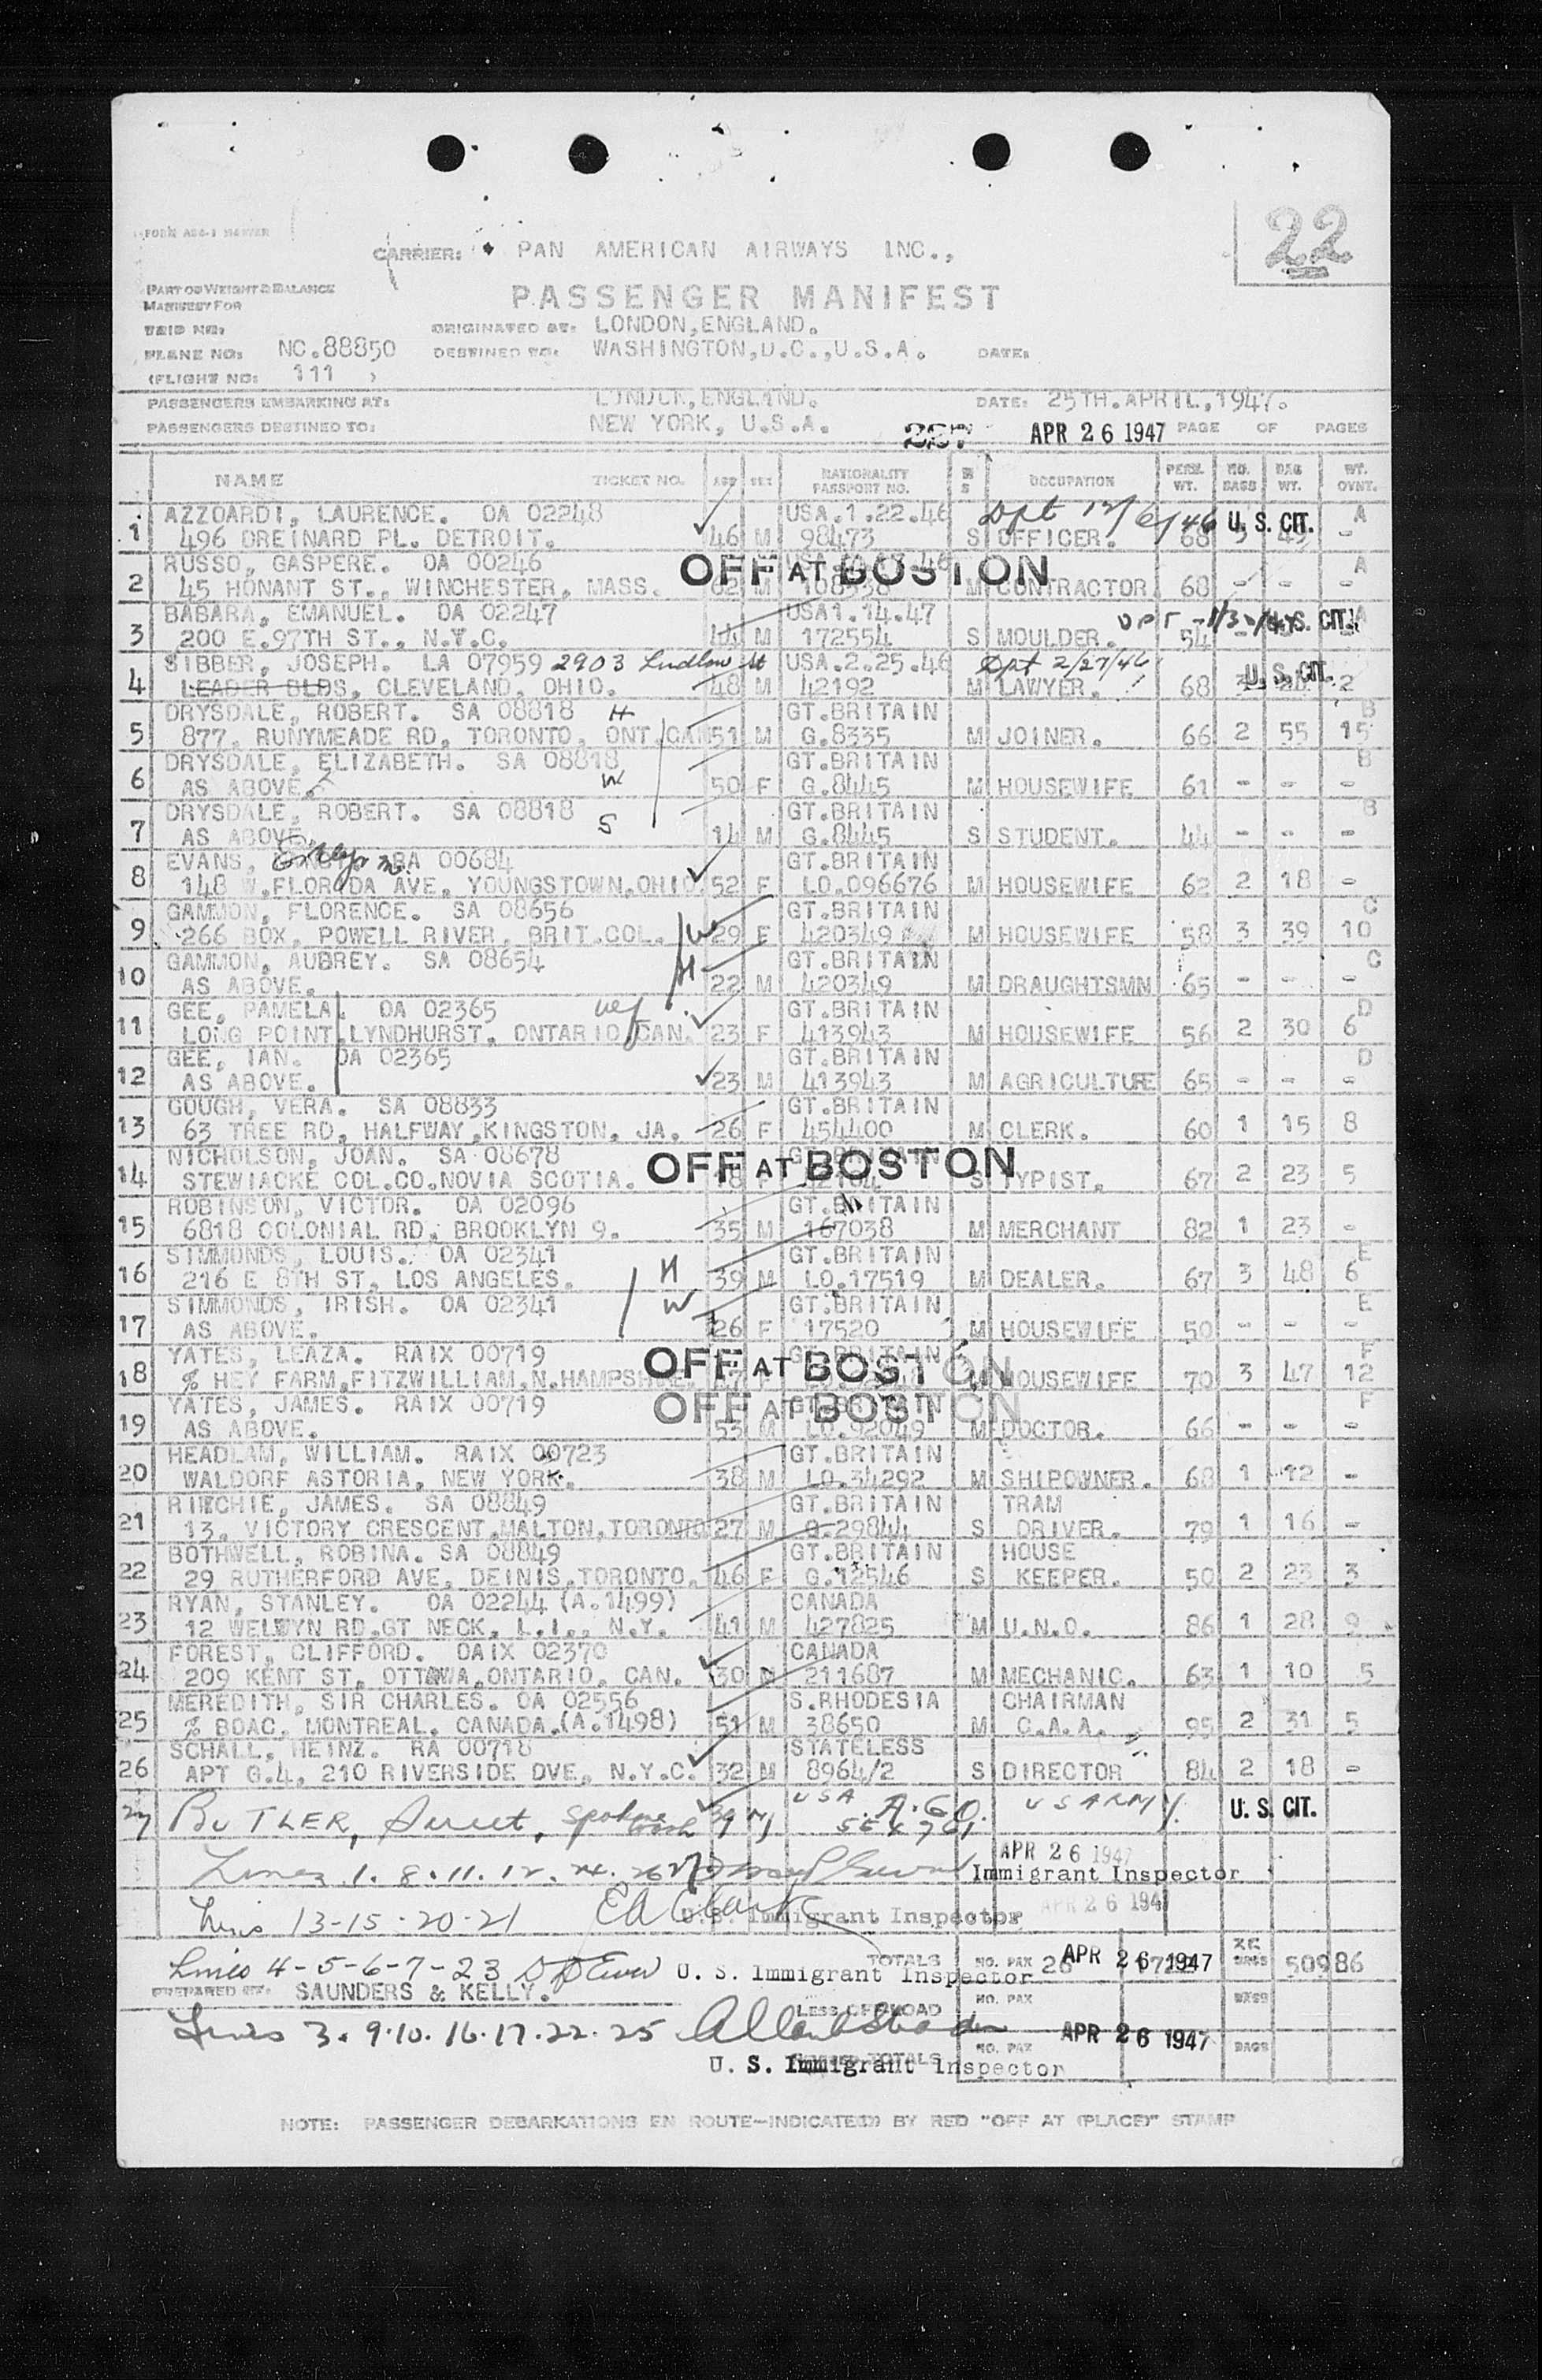 22
FORM
CARRIER: PAN AMERICAN AIRWAYS INC.,
PART OF WEIGHT & BALANCE
MANIFEST FOR
PASSENGER MANIFEST
TRIP NO: ORIGINATED AT: LONDON, ENGLAND.
PLANE NO: NC.88850 DESTINED TO: WASHINGTON, D.C., U.S.A. DATE:
(FLIGHT NO: 111 )
PASSENGERS EMBARKING AT: LONDON, ENGLAND. DATE: 25TH. APRIL, 1947.
PASSENGERS DESTINED TO: NEW YORK, U.S.A. APR 26 1947 PAGE OF PAGES
NAME TICKET NO. AGE SEX NATIONALITY PASSPORT NO. M S OCCUPATION PERS. WT. NO. BAGS BAG WT. WT. OVNT.
AZZOARDI, LAURENCE. OA 02248 USA.1.22.46 Dpt 12/6/46 U. S. CIT. A
1 496 DREINARD PL. DETROIT. 46 M 98473 S OFFICER. 68 -
RUSSO, GASPERE. OA 00246 OFF AT BOSTON A
2 45 HONANT ST., WINCHESTER, MASS. 62 M M CONTRACTOR. 68 - - -
BABARA, EMANUEL. OA 02247 USA1.14.47 A
3 200 E.97TH ST., N.Y.C. 44 M 172554 S MOULDER. 54 U. S. CIT.
SIBBER, JOSEPH. LA 07959 2903 Ludlow St USA.2.25.46 Dpt 2/27/46 U. S. CIT.
4 LEADER BLDS, CLEVELAND, OHIO. 48 M 42192 M LAWYER. 68 2
DRYSDALE, ROBERT. SA 08818 H GT.BRITAIN B
5 877, RUNYMEADE RD, TORONTO, ONT. CAN 51 M G.8335 M JOINER. 66 2 55 15
DRYSDALE, ELIZABETH. SA 08818 W GT.BRITAIN B
6 AS ABOVE. 50 F G.8445 M HOUSEWIFE 61 - - -
DRYSDALE, ROBERT. SA 08818 S GT.BRITAIN B
7 AS ABOVE. 14 M G.8445 S STUDENT. 44 - - -
EVANS, RA 00684 GT.BRITAIN
8 148 W.FLORIDA AVE, YOUNGSTOWN, OHIO. 52 F LO.096676 M HOUSEWIFE 62 2 18 -
GAMMON, FLORENCE. SA 08656 GT.BRITAIN C
9 266 BOX, POWELL RIVER, BRIT.COL. W 29 F 420349 M HOUSEWIFE 58 3 39 10
GAMMON, AUBREY. SA 08654 H GT.BRITAIN C
10 AS ABOVE. 22 M 420349 M DRAUGHTSMN 65 - - -
GEE, PAMELA. OA 02365 GT.BRITAIN D
11 LONG POINT, LYNDHURST, ONTARIO, CAN. 23 F 413943 M HOUSEWIFE 56 2 30 6
GEE, IAN. OA 02365 GT.BRITAIN D
12 AS ABOVE. 23 M 413943 M AGRICULTURE 65 - - -
GOUGH, VERA. SA 08833 GT.BRITAIN
13 63 TREE RD, HALFWAY, KINGSTON, JA. 26 F 454400 M CLERK. 60 1 15 8
NICHOLSON, JOAN. SA 08678 OFF AT BOSTON
14 STEWIACKE COL.CO.NOVIA SCOTIA. S TYPIST. 67 2 23 5
ROBINSON, VICTOR. OA 02096 GT.BRITAIN
15 6818 COLONIAL RD, BROOKLYN 9. 35 M 167038 M MERCHANT 82 1 23 -
SIMMONDS, LOUIS. OA 02341 GT.BRITAIN E
16 216 E 8TH ST, LOS ANGELES. H 39 M LO.17519 M DEALER. 67 3 48 6
SIMMONDS, IRISH. OA 02341 W GT.BRITAIN E
17 AS ABOVE. 26 F 17520 M HOUSEWIFE 50 - - -
YATES, LEAZA. RAIX 00719 OFF AT BOSTON F
18 % HEY FARM, FITZWILLIAM, N.HAMPSHIRE. M HOUSEWIFE 70 3 47 12
YATES, JAMES. RAIX 00719 OFF AT BOSTON F
19 AS ABOVE. 53 M LO.92049 M DOCTOR. 66 - - -
HEADLAM, WILLIAM. RAIX 00723 GT.BRITAIN
20 WALDORF ASTORIA, NEW YORK. 38 M LO.34292 M SHIPOWNER. 68 1 12 -
RITCHIE, JAMES. SA 08849 GT.BRITAIN TRAM
21 13, VICTORY CRESCENT, MALTON, TORONTO 27 M G.29844 S DRIVER. 79 1 16 -
BOTHWELL, ROBINA. SA 08849 GT.BRITAIN HOUSE
22 29 RUTHERFORD AVE, DEINIS, TORONTO. 46 F G.12546 S KEEPER. 50 2 23 3
RYAN, STANLEY. OA 02244 (A.1499) CANADA
23 12 WELWYN RD, GT NECK, L.I., N.Y. 41 M 427825 M U.N.O. 86 1 28 9
FOREST, CLIFFORD. OAIX 02370 CANADA
24 209 KENT ST, OTTAWA, ONTARIO, CAN. 30 M 211687 M MECHANIC. 63 1 10 5
MEREDITH, SIR CHARLES. OA 02556 S.RHODESIA CHAIRMAN
25 % BOAC, MONTREAL, CANADA. (A.1498) 51 M 38650 M C.A.A. 95 2 31 5
SCHALL, HEINZ. RA 00718 STATELESS
26 APT G.4, 210 RIVERSIDE DVE, N.Y.C. 32 M 8964/2 S DIRECTOR 84 2 18 -
27 BUTLER, Spokane Wash M USA A.GO. US ARMY U. S. CIT.
APR 26 1947
Lines 1. 8. 11. 12. 24. 26 27 Immigrant Inspector
Lines 13-15-20-21 EA Clark U.S. Immigrant Inspector APR 26 1947
TOTALS NO. PAX 26 APR 26 1947 BAGS 509 86
Lines 4-5-6-7-23 U. S. Immigrant Inspector
PREPARED BY: SAUNDERS & KELLY.
LESS OFFLOAD NO. PAX BAGS
Lines 3. 9. 10. 16. 17. 22. 25 APR 26 1947
TOTALS NO. PAX BAGS
U. S. Immigrant Inspector
NOTE: PASSENGER DEBARKATIONS EN ROUTE—INDICATED BY RED "OFF AT (PLACE)" STAMP